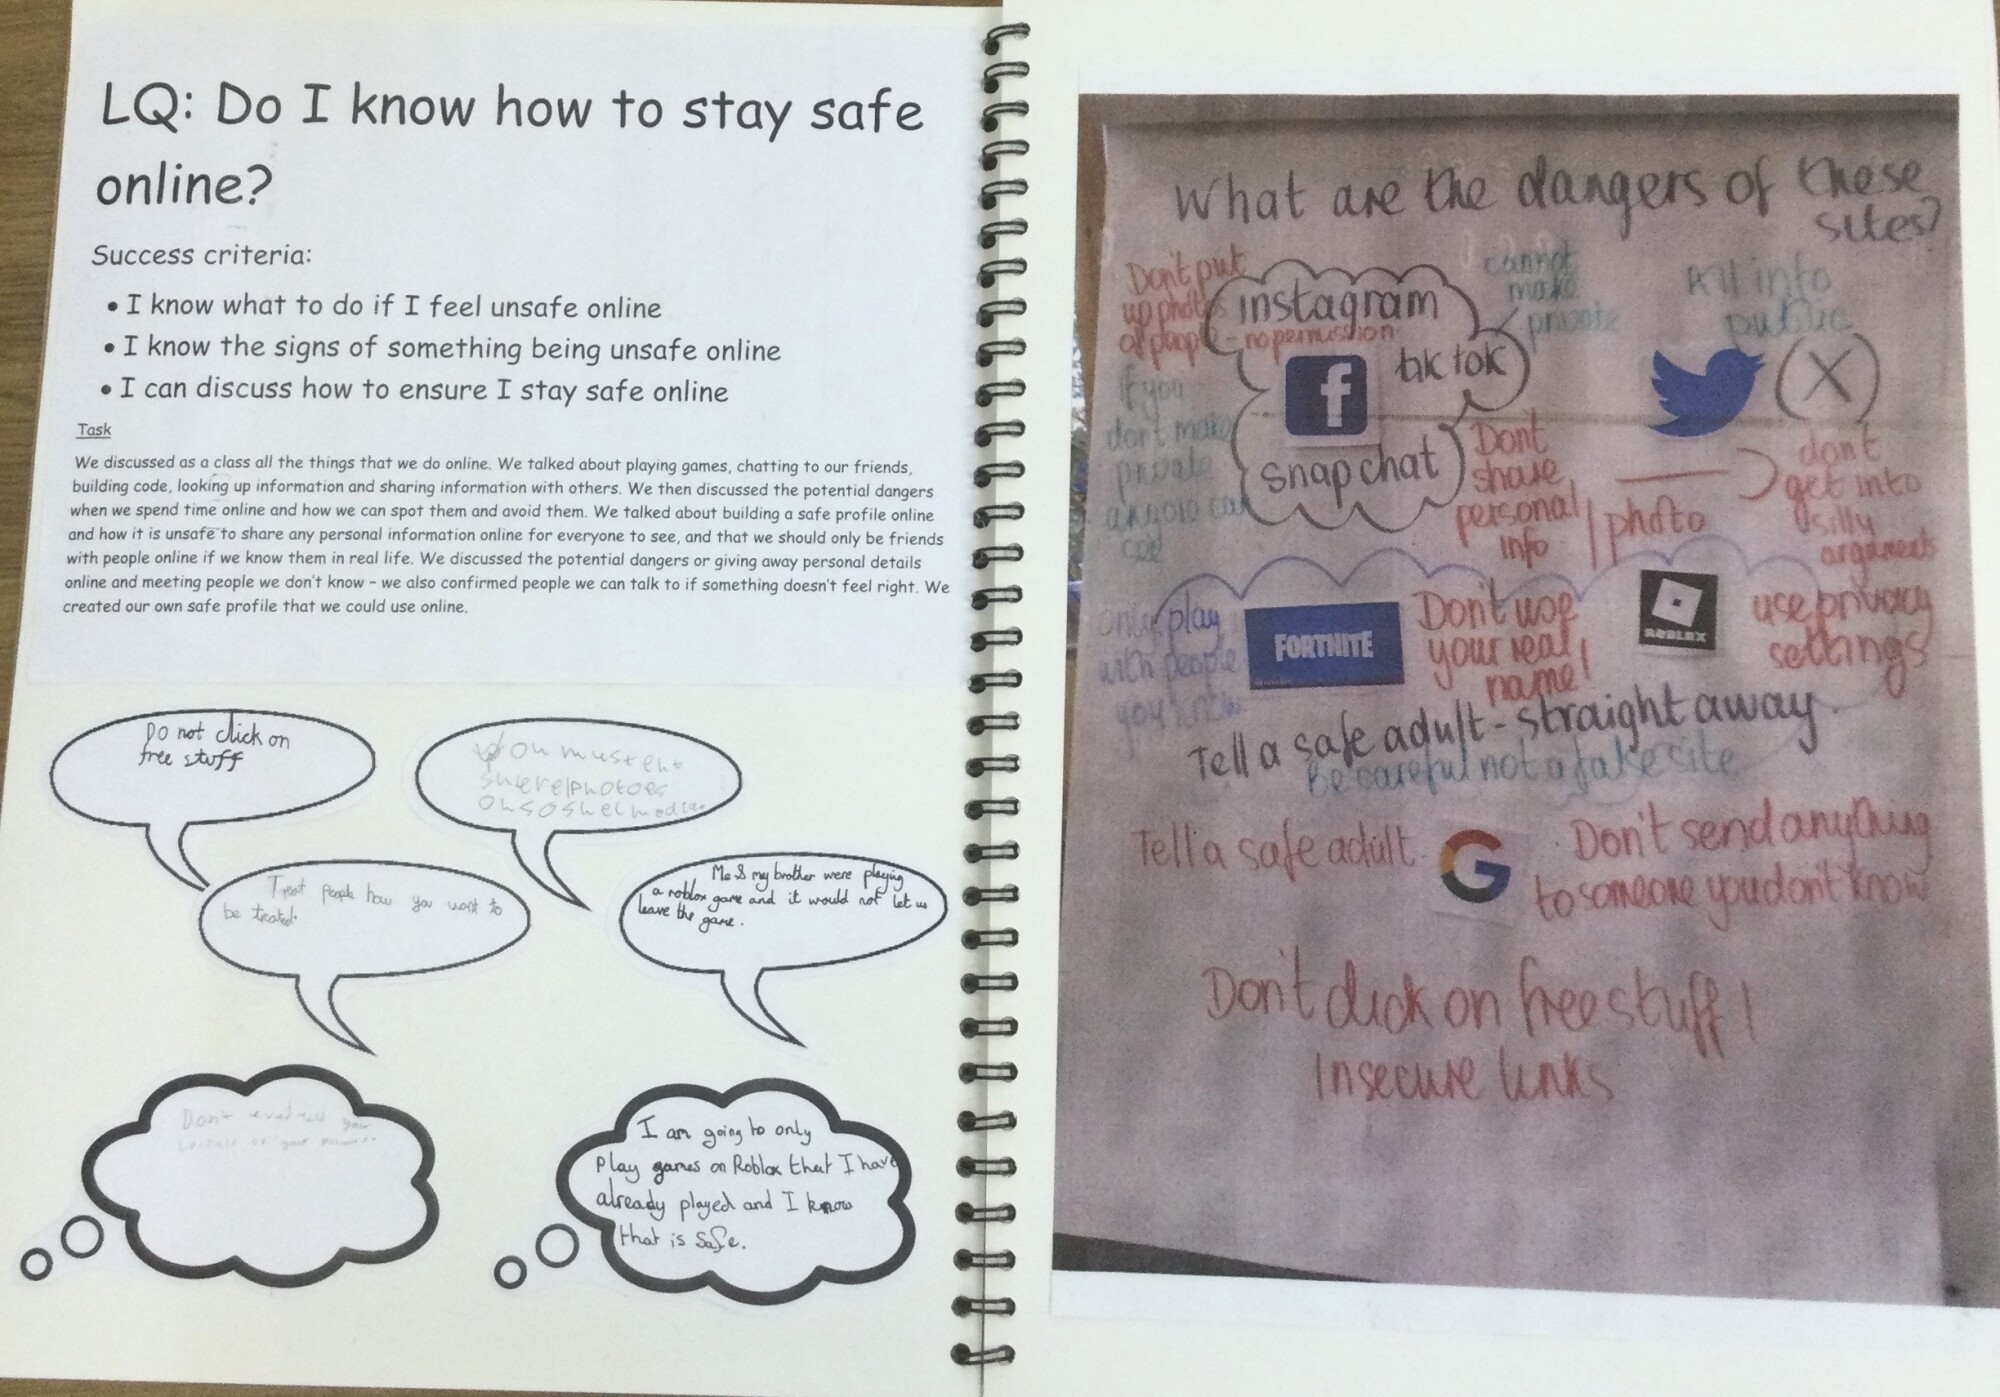 LQ: Do I know how to stay safe
online?
Success criteria:
• I know what to do if I feel unsafe online
• I know the signs of something being unsafe online
• I can discuss how to ensure I stay safe online
Task
We discussed as a class all the things that we do online. We talked about playing games, chatting to our friends,
building code, looking up information and sharing information with others. We then discussed the potential dangers
when we spend time online and how we can spot them and avoid them. We talked about building a safe profile online
and how it is unsafe to share any personal information online for everyone to see, and that we should only be friends
with people online if we know them in real life. We discussed the potential dangers or giving away personal details
online and meeting people we don't know – we also confirmed people we can talk to if something doesn't feel right. We
created our own safe profile that we could use online.
Do not click on
free stuff
You
photoes
Treat people how you want to
be treated.
Me & my brother were playing
a roblox game and it would not let us
leave the game.
Don't
I am going to only
Play games on Roblox that I have
already played and I know
that is safe.
What are the dangers of these
sites?
Don't put
up photos
of people - no permission
instagram
cannot
make
private
All info
public
f
tik tok
X
if you
dont make
private
anyone can
see
snapchat
Don't
share
personal
info
photo
don't
get into
silly
arguments
only play
with people
you know
FORTNITE
Don't use
your real
name!
ROBLOX
use privacy
settings
Tell a safe adult - straight away
Be careful not a fake site
Tell a safe adult
G
Don't send anything
to someone you don't know
Don't click on free stuff!
Insecure links